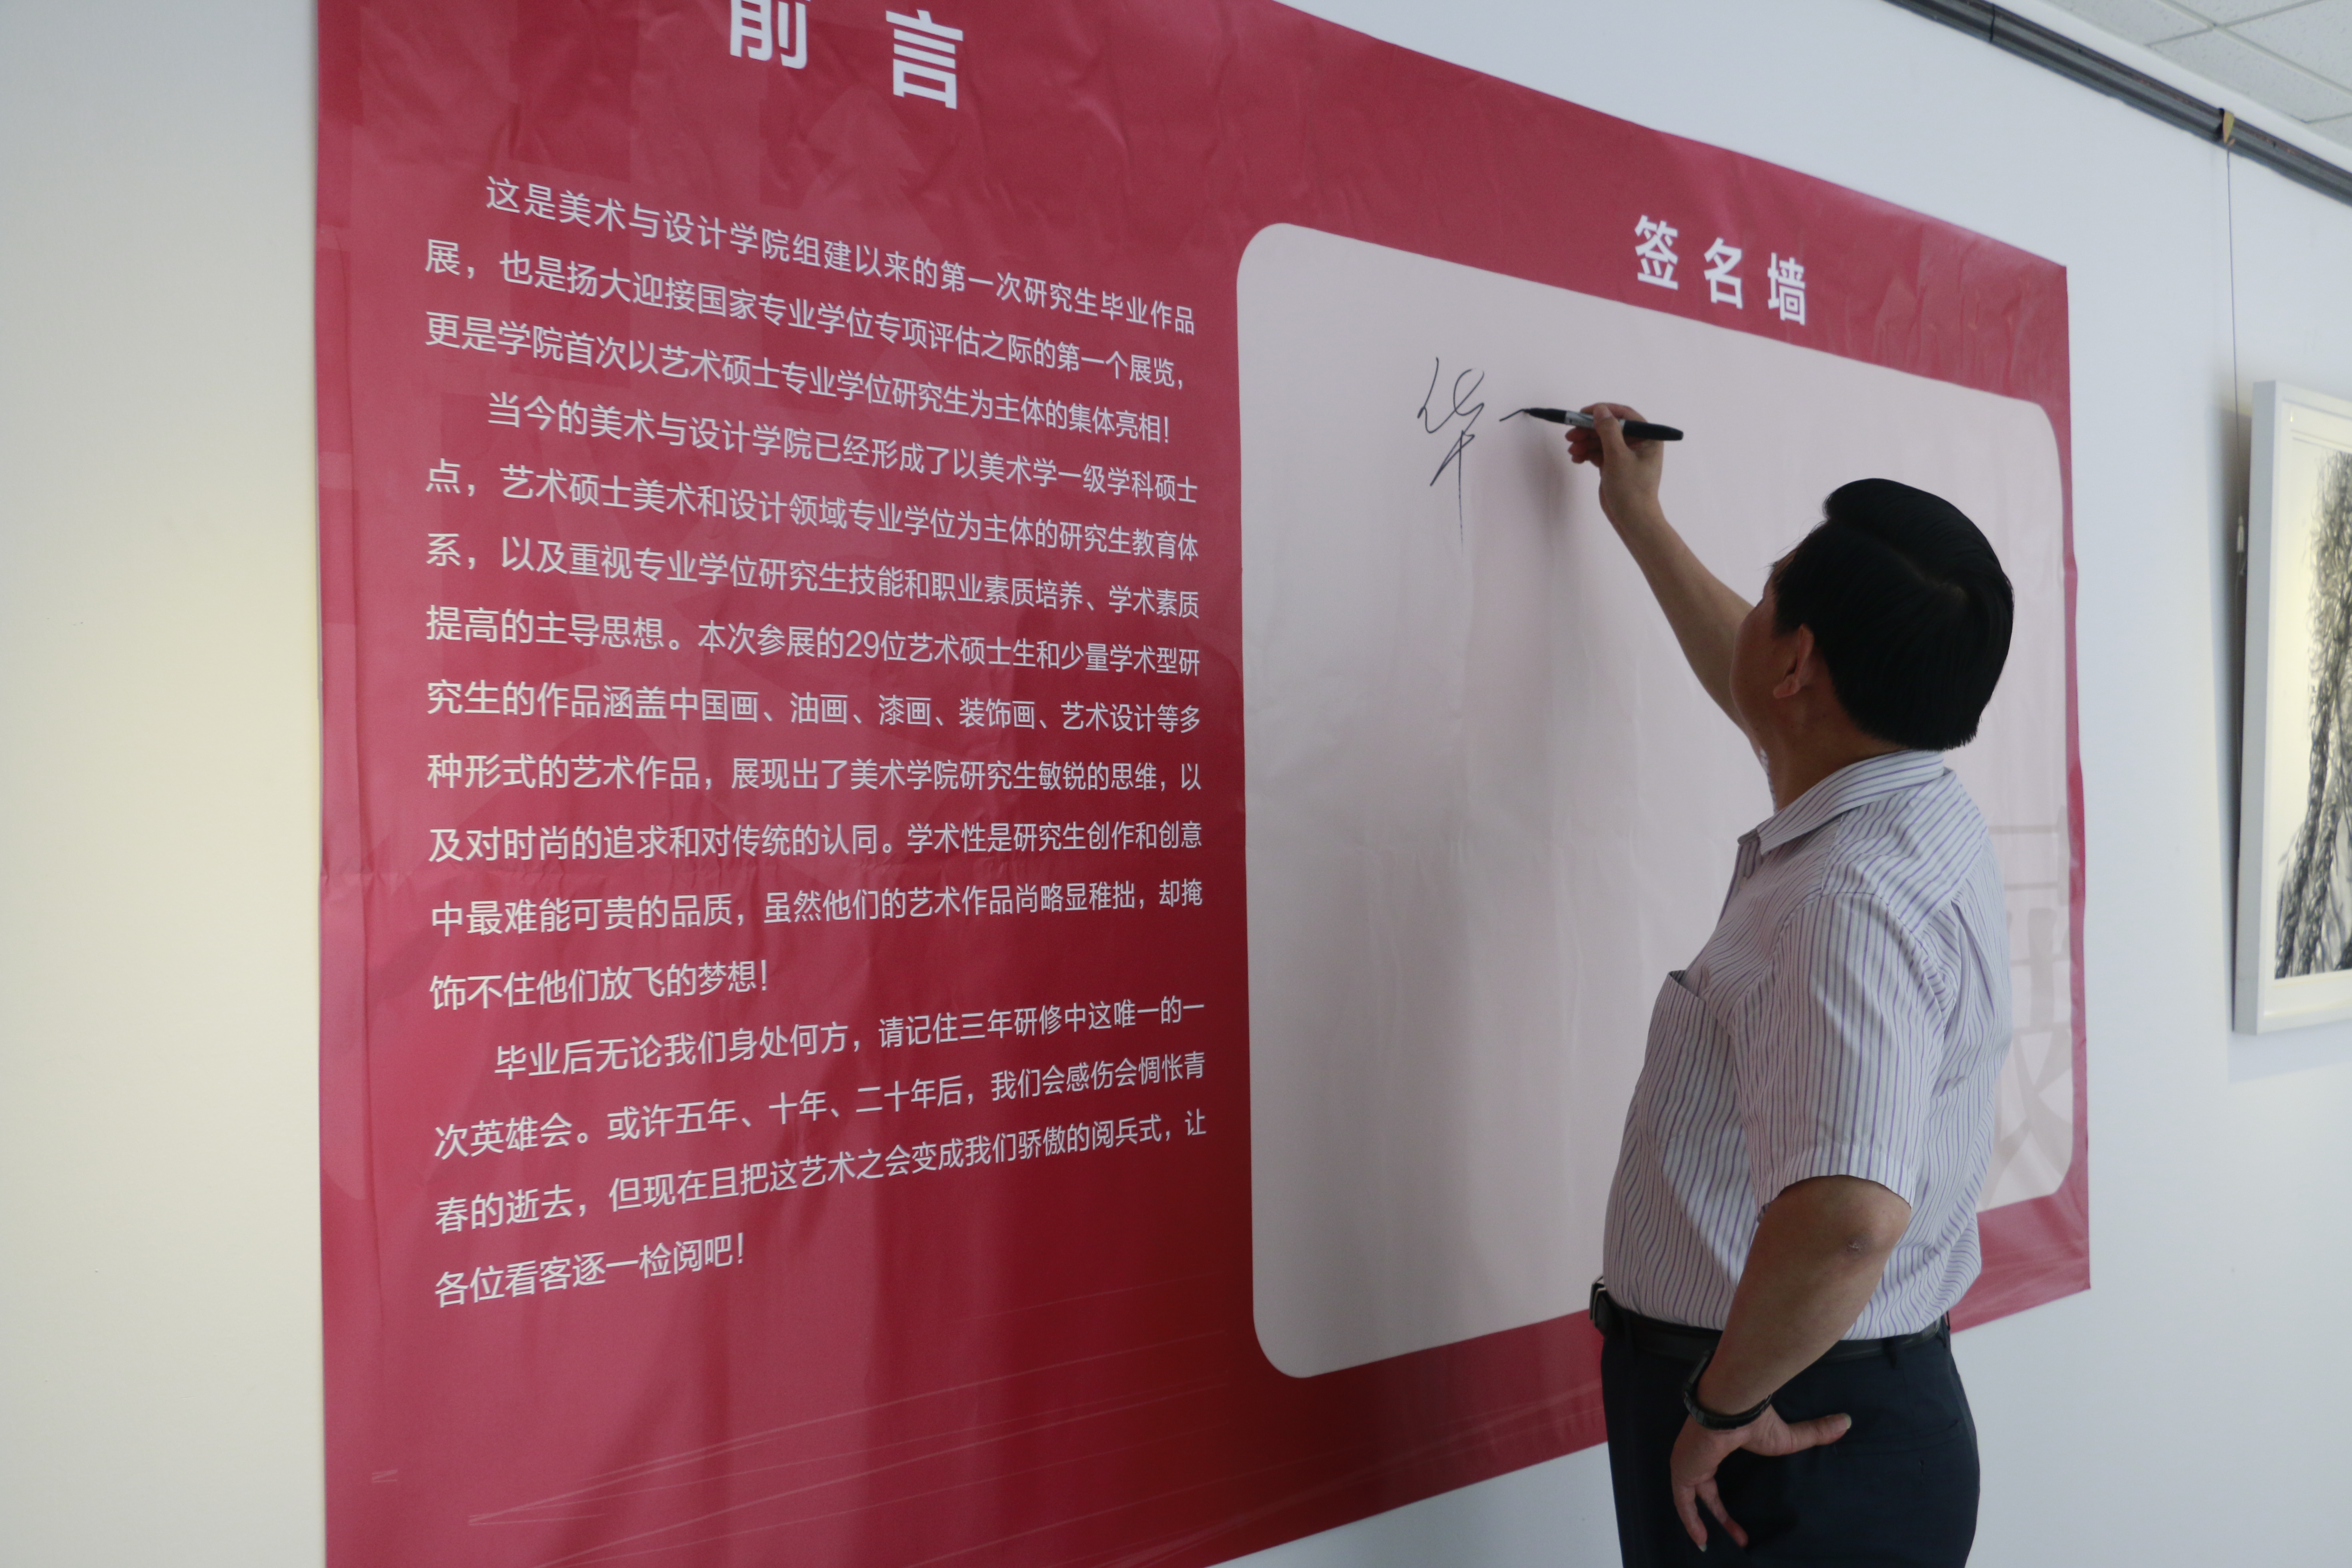 前言
这是美术与设计学院组建以来的第一次研究生毕业作品
展，也是扬大迎接国家专业学位专项评估之际的第一个展览，
更是学院首次以艺术硕士专业学位研究生为主体的集体亮相！
当今的美术与设计学院已经形成了以美术学一级学科硕士
点，艺术硕士美术和设计领域专业学位为主体的研究生教育体
系，以及重视专业学位研究生技能和职业素质培养、学术素质
提高的主导思想。本次参展的29位艺术硕士生和少量学术型研
究生的作品涵盖中国画、油画、漆画、装饰画、艺术设计等多
种形式的艺术作品，展现出了美术学院研究生敏锐的思维，以
及对时尚的追求和对传统的认同。学术性是研究生创作和创意
中最难能可贵的品质，虽然他们的艺术作品尚略显稚拙，却掩
饰不住他们放飞的梦想！
毕业后无论我们身处何方，请记住三年研修中这唯一的一
次英雄会。或许五年、十年、二十年后，我们会感伤会惆怅青
春的逝去，但现在且把这艺术之会变成我们骄傲的阅兵式，让
各位看客逐一检阅吧！
签名墙
华